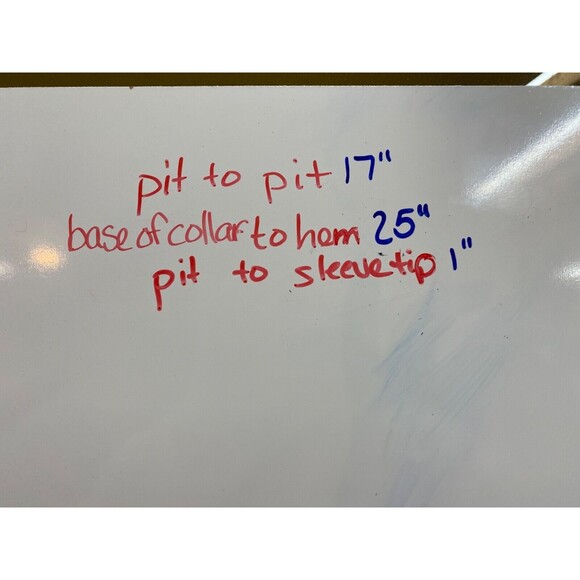 pit to pit 17"
base of collar to hem 25"
pit to sleeve tip 1"